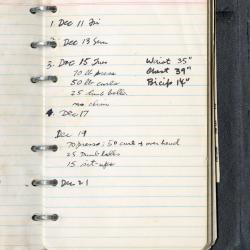 1. Dec 11 Fri
2. Dec 13 Sun
3. Dec 15 Tues
Wrist 35"
Chest 39"
Bicip 14"
70 lb press
50 lb curls
25 dumb bells
no chins
4. Dec 17
Dec 19
70 press; 50 curl & overhead
25 Dumb bells
15 sit-ups
Dec 21